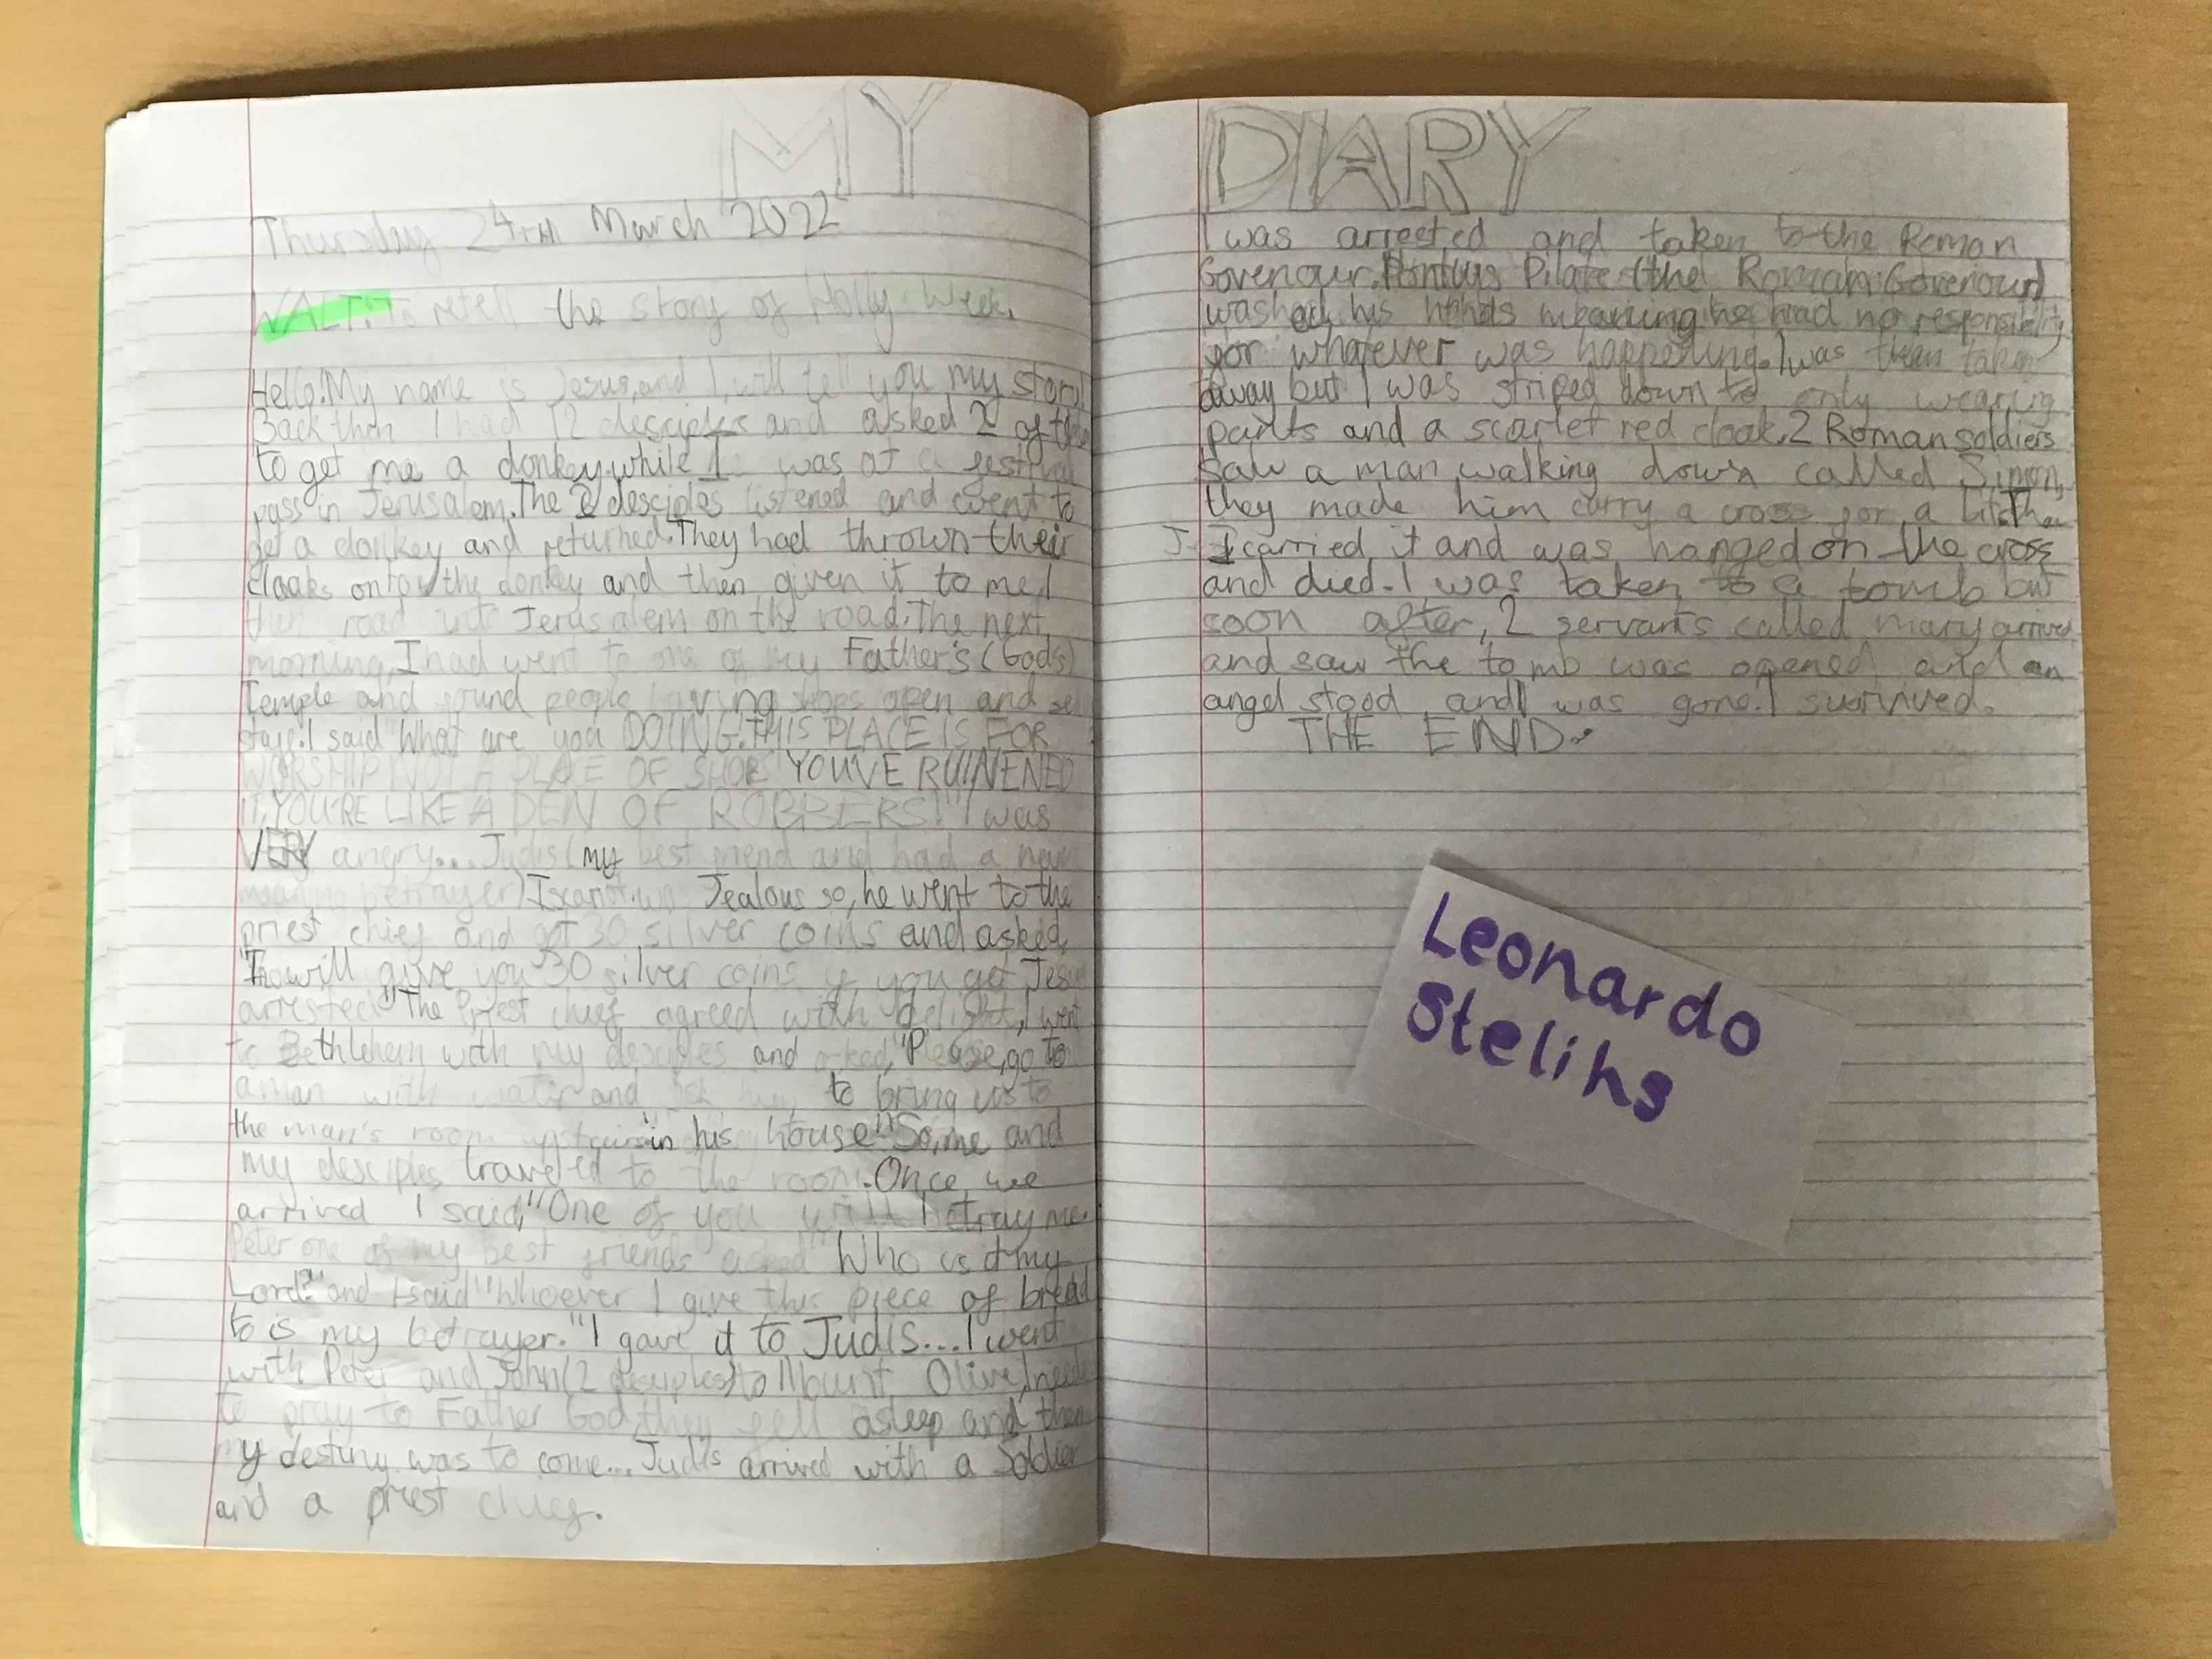 MY DIARY
Thursday 24TH March 2022
WALT: To retell the story of Holly Week.
Hello! My name is Jesus, and I will tell you my story
Back then I had 12 desciples and asked 2 of them
to get me a donkey while I was at a festival
pass in Jerusalem. The 2 desciples listened and went to
get a donkey and returned. They had thrown their
cloaks onto the donkey and then given it to me. I
then road into Jerusalem on the road. The next
morning, I had went to one of my Father's (God's)
Temple and found people having shops open and sell
I said "What are you DOING! THIS PLACE IS FOR
WORSHIP NOT A PLACE OF SHOPS YOU'VE RUINENED
IT, YOU'RE LIKE A DEN OF ROBBERS!" I was
VERY angry... Judis (my best friend and had a name
meaning betrayer) Iscariot was Jealous so, he went to the
priest chief and got 30 silver coins and asked,
will give you 30 silver coins if you get Jesus
arrested" The Priest chief agreed with delight, I went
to Bethlehem with my desciples and asked, "Please, go to
a man with water and ask him to bring us to
the man's room upstairs in his house" So, me and
my desciples traveled to the room. Once we
arrived I said, "One of you will betray me.
Peter one of my best friends asked "Who is it my
Lord?" and I said "Whoever I give this piece of bread
to is my betrayer." I gave it to Judis... I went
with Peter and John (2 desciples) to Mount Olive, I need
to pray to Father God, they fell asleep and then
my destiny was to come... Judis arrived with a Soldier
and a priest chief.
I was arrested and taken to the Roman
Govenour. Pontius Pilate (the Roman Govenour)
washed his hands meaning he had no responsibility
for whatever was happening. I was then taken
away but I was striped down to only wearing
pants and a scarlet red cloak. 2 Roman soldiers
saw a man walking down called Simon,
they made him carry a cross for a bit. Then
I carried it and was hanged on the cross
and died. I was taken to a tomb but
soon after, 2 servants called mary arrived
and saw the tomb was opened and an
angel stood and I was gone. I survived.
THE END.
Leonardo
Stelihs